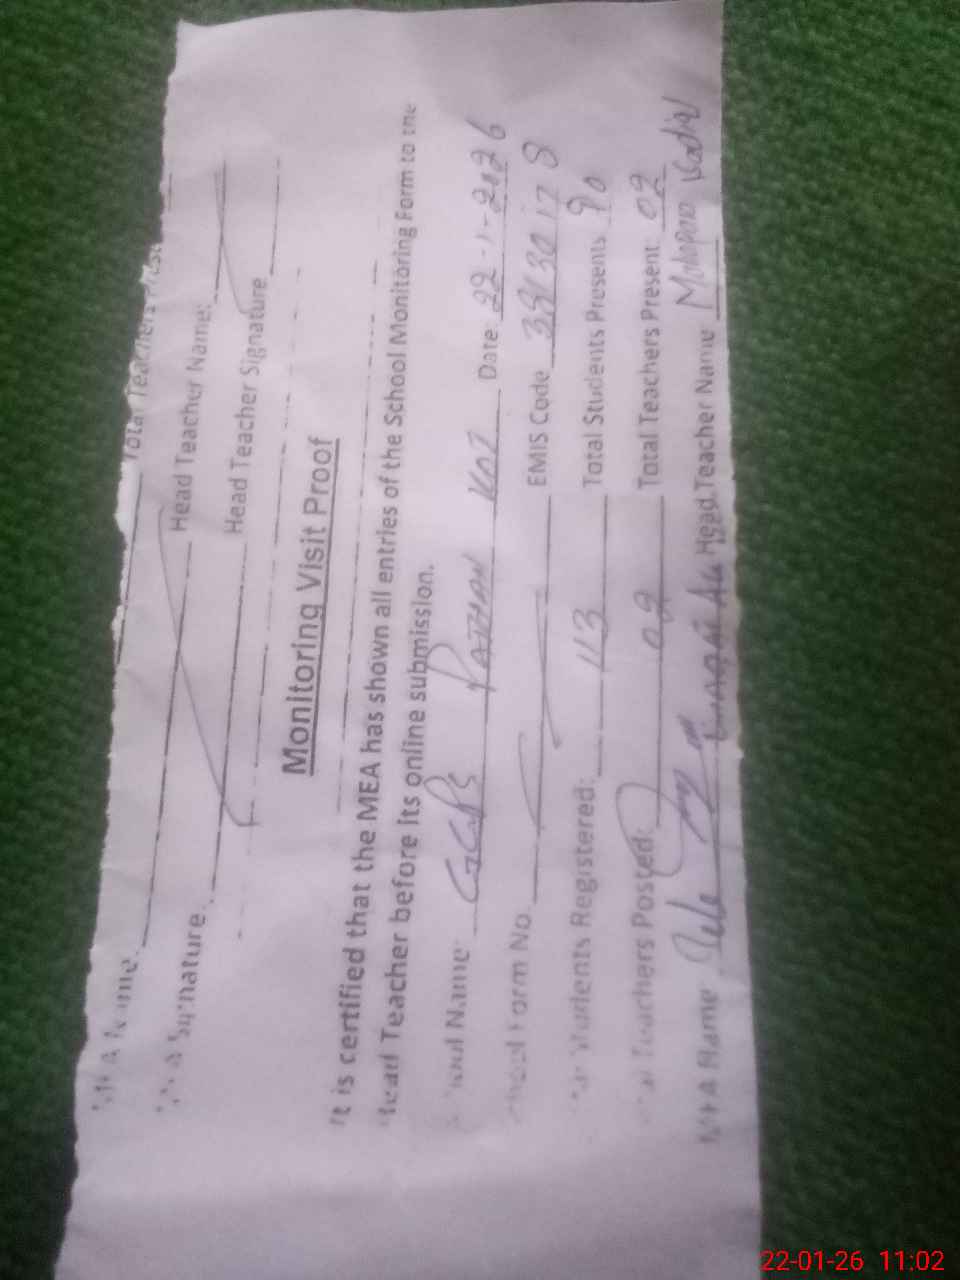 Total Teachers
MEA Name
Head Teacher Name:
MEA Signature
Head Teacher Signature
Monitoring Visit Proof
It is certified that the MEA has shown all entries of the School Monitoring Form to the
Head Teacher before its online submission.
School Name GGPS PATHAN KOT Date 22-1-2026
School Form No. EMIS Code
Total Students Registered: 113 Total Students Presents 90
Total Teachers Posted: 02 Total Teachers Present 02
MEA Name Head Teacher Name
22-01-26 11:02